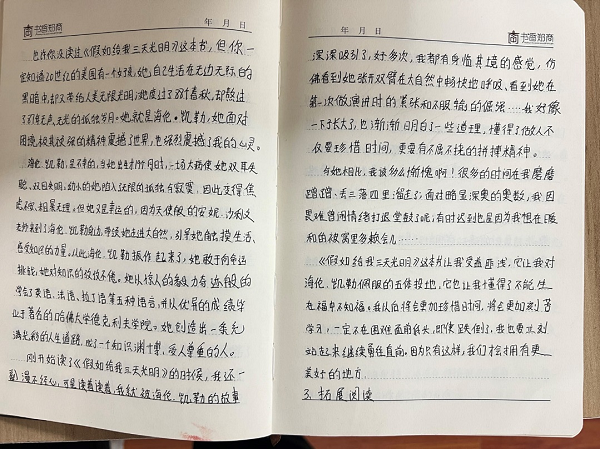 书香知商
年 月 日
也许你没读过《假如给我三天光明》这本书,但你一
定知道20世纪的美国有一个女孩,她自己生活在无边无际的
黑暗中,却又带给人类无限光明;她度过了88个春秋,却熬过
了87年无光、无声的孤独岁月。她就是海伦·凯勒,她面对
困境极其顽强的精神震撼了世界,也强烈震撼了我的心灵。
海伦·凯勒,是不幸的,当她出生19个月时,一场大病使她双耳失
聪、双目失明,幼小的她陷入无限的孤独与寂寞,因此变得焦
虑不安、粗暴无理。但她又是幸运的,因为天使般的安妮·沙利文
老师来到了海伦·凯勒身边,带领她走进大自然,引导她触摸生活、
感受知识的力量,从此海伦·凯勒振作起来了,她敢于向命运
挑战,她对知识的孜孜不倦。她以惊人的毅力奇迹般的
学会了英语、法语、拉丁语等五种语言,并以优异的成绩毕
业于著名的哈佛大学德克利夫学院。她创造出一条充
满光彩的人生道路,成了一个知识渊博,受人尊重的人。
刚开始读了《假如给我三天光明》的时候,我还一
副漫不经心,可是读着读着,我就被海伦·凯勒的故事
书香知商
年 月 日
深深吸引了,好多次,我都有身临其境的感觉,仿
佛看到她张开双臂在大自然中畅快地呼吸,看到她在
第一次做演讲时的紧张和不服输的倔强……我好像
一下子长大了,也渐渐明白了一些道理,懂得了做人不
仅要珍惜时间,更要有不屈不挠的拼搏精神。
与她相比,我该多么惭愧啊!很多的时间在我磨磨
蹭蹭、丢三落四里溜走了;面对略显深奥的奥数,我因
畏难曾闹情绪打退堂鼓了呢;有时迟到也是因为我想在暖
和的被窝里多赖会儿……
《假如给我三天光明》这本书让我受益匪浅,它让我对
海伦·凯勒佩服的五体投地,它也让我懂得了不能生
在福中不知福。我从此将会更加珍惜时间,将会更加刻苦
学习,一定不在困难面前低头,即使跌倒了,我也要立刻
站起来继续勇往直前,因为只有这样,我们才会拥有更
美好的地方。
3.拓展阅读